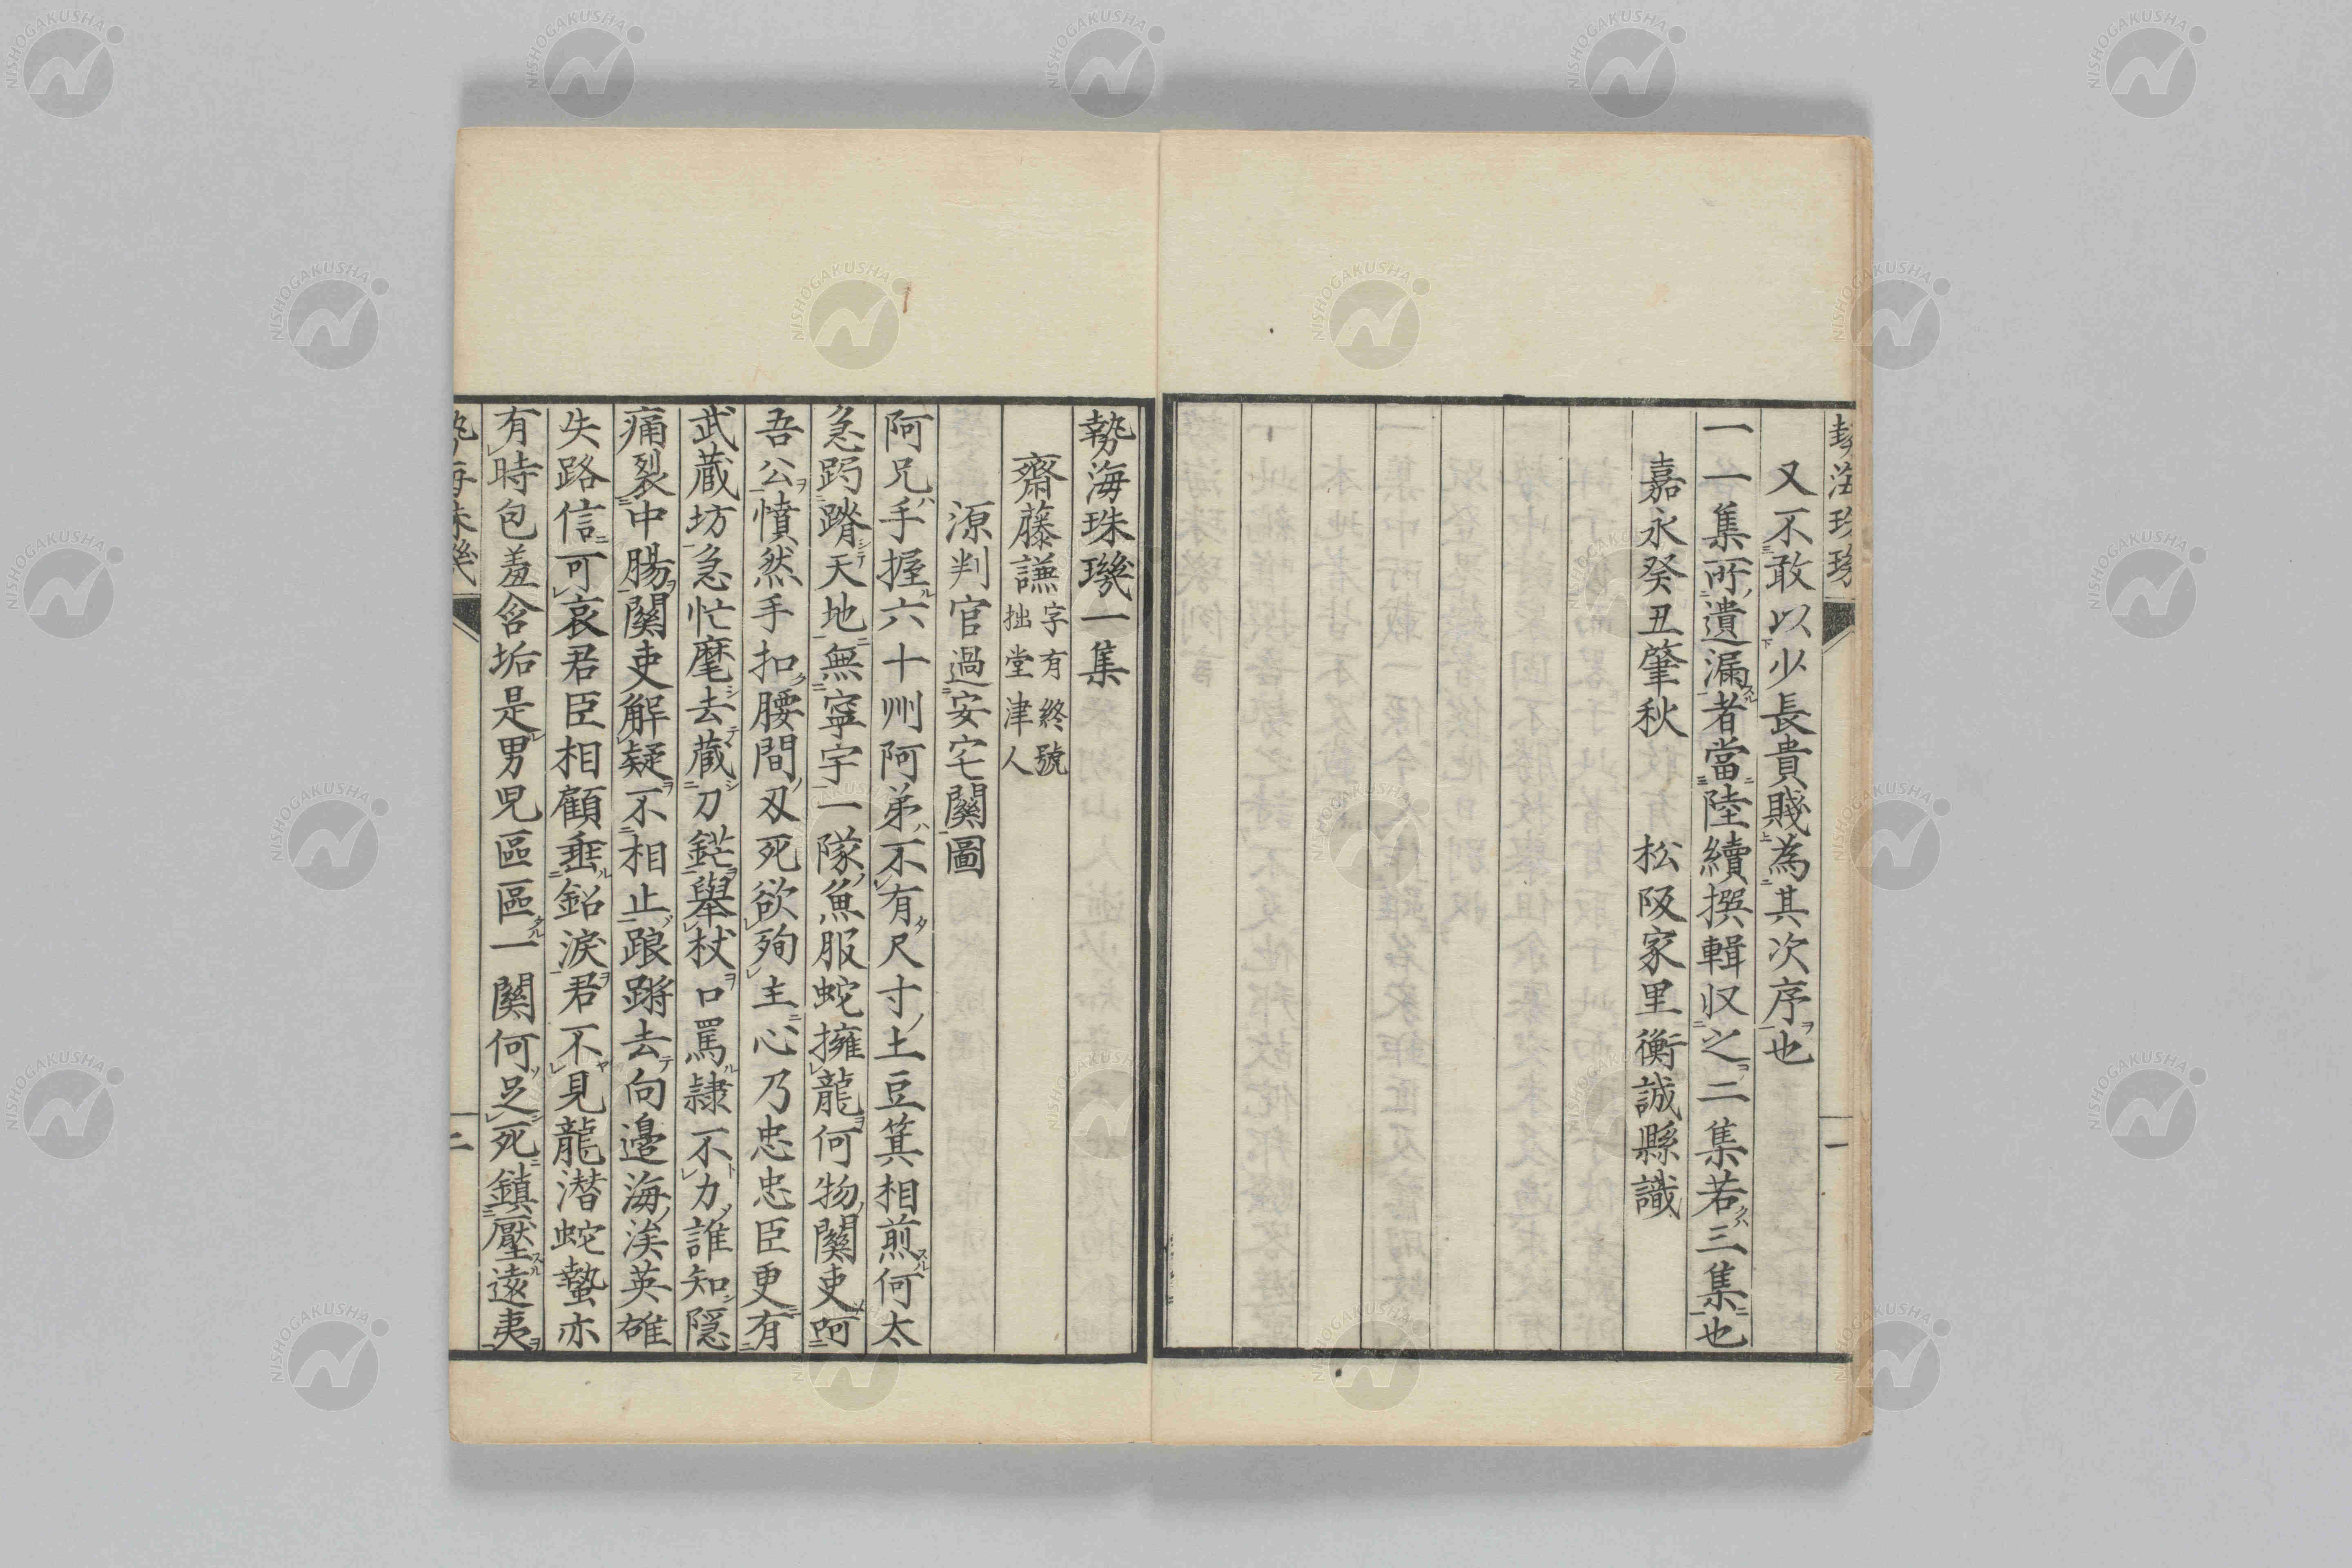 又不敢以少長貴賤為其次序也
一一集所遺漏者當陸續撰輯収之二集若三集也
嘉永癸丑肇秋 松阪家里衡誠縣識
一
勢海珠璣一集
齋藤謙 字有終號拙堂津人
源判官過安宅關圖
阿兄手握六十州阿弟不有尺寸土豆箕相煎何太
急跼蹐天地無寧宇一隊魚服蛇擁龍何物關吏呵
吾公憤然手扣腰間刄死欲殉主心乃忠忠臣更有
武蔵坊急忙麾去蔵刀鋩舉杖口罵隷不力誰知隠
痛裂中腸關吏解疑不相止踉蹡去向邊海涘英雄
失路信可哀君臣相顧垂鉛淚君不見龍潜蛇蟄亦
有時包羞含垢是男児區區一關何足死鎮壓遠夷
二
NISHOGAKUSHA